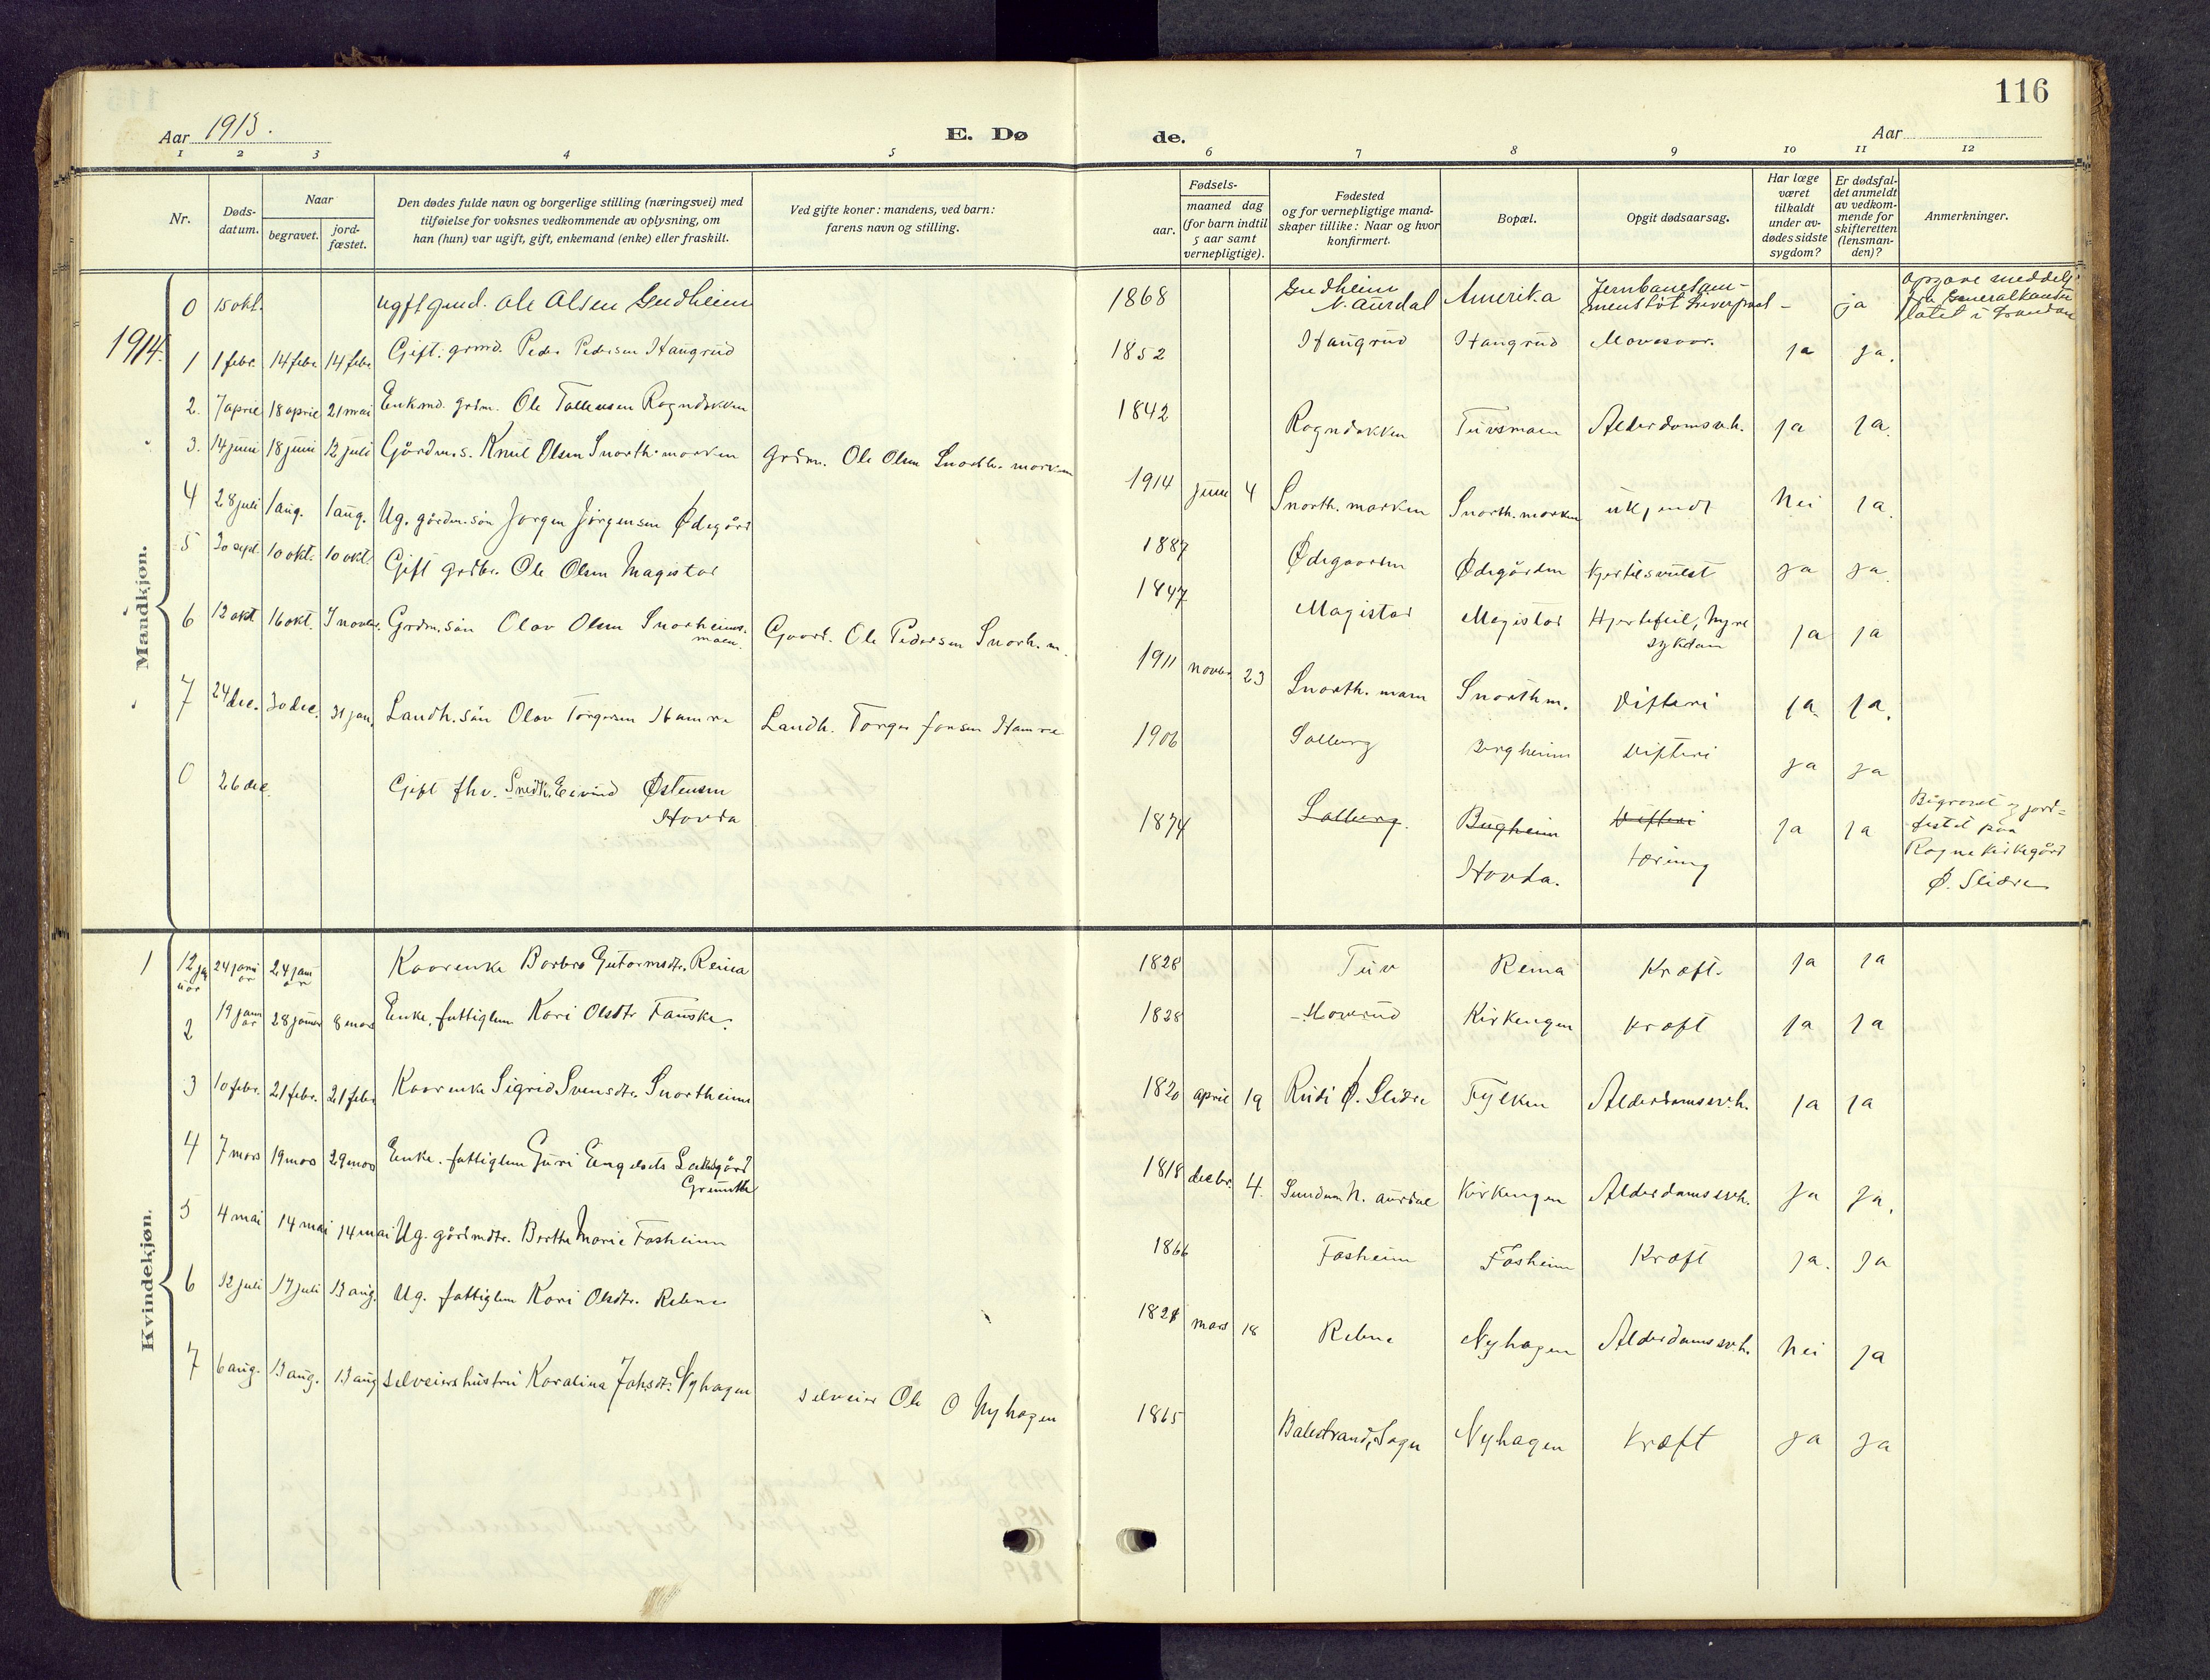 116
Aar 1913.
E. Dø de.
Aar
1 2 3 4 5 6 7 8 9 10 11 12
Nr.
Døds-
datum.
Naar
begravet.
jord-
fæstet.
Den dødes fulde navn og borgerlige stilling (næringsvei) med
tilføielse for voksnes vedkommende av oplysning, om
han (hun) var ugift, gift, enkemand (enke) eller fraskilt.
Ved gifte koner: mandens, ved barn:
farens navn og stilling.
Fødsels-
aar.
maaned dag
(for barn indtil
5 aar samt
vernepligtige).
Fødested
og for vernepligtige mand-
skaper tillike: Naar og hvor
konfirmert.
Bopæl.
Opgit dødsaarsag.
Har læge
været
tilkaldt
under av-
dødes sidste
sygdom?
Er dødsfal-
det anmeldt
av vedkom-
mende for
skifteretten
(lensman-
den)?
Anmerkninger.
Mandkjøn.
0 15 okt. ugift gmd. Ole Olsen Gudheim 1868 Gudheim N. Aurdal Amerika Jernbanesam-
menstöt Liverpool - ja Opgave meddelt
fra Generalkonsu
latet i London
1914.
1 1 febr. 14 febr. 14 febr. Gift. grmd. Peder Pedersen Haugrud 1852 Haugrud Haugrud Mavesaar. ja ja.
2. 7 april 18 april 21 mai Enkmd. grdm. Ole Tollevsen Rogndokken 1842 Rogndokken Tuvsmoen Alderdomssvh. ja ja.
3. 14 juni 18 juni 12 juli Gårdm.s. Knut Olsen Snorth.morken grdm. Ole Olsen Snorth. morken 1914 juni 4 Snorth. morken Snorth. morken ukjendt Nei ja.
4 28 juli 1 aug. 1 aug. Ug. gårdm.sön Jørgen Jörgensen Ødegård 1887 Ødegaarden Ødegården Kjertelsvulst ja ja.
5 30 sept. 10 okt. 10 okt. Gift grdbr. Ole Olsen Magistad 1847 Magistad Magistad Hjertefeil, nyre
sykdom ja ja
6 12 okt. 16 okt. 7 novbr. Grdm. sön Olav Olsen Snorheims-
moen. Gaard. Ole Pedersen Snorh. m. 1911 novbr 23 Snorth. moen Snorth m. Difteri ja ja.
7 24 dec. 30 dec. 31 jan. Landh. sön Olav Torgersen Hamre Landh. Torger Jonsen Hamre 1906 Solberg Bergheim Difteri ja ja
0 26 dec. Gift fhv. Snedk. Eivind Østensen
Hovda 1874 Solberg. Bergheim Difteri
Hovda. tæring ja ja Begravet og jord-
festet paa
Rogne kirkegård
Ø. Slidre
Kvindekjøn.
1 12 januar 24 januar 24 januar Kaarenke Barbro Gutormsdtr. Reina 1828 Tuv Reina Kræft. ja ja
2 19 januar 28 januar 8 mars Enke, fattiglem Kari Olsdtr Fauske. 1828 Hovrud Kirkengen Kræft ja ja
3 10 febr. 21 febr. 21 febr. Kaarenke Sigrid Svensdtr. Snortheim 1820 april 19 Rudi Ø. Slidre Fylken Alderdomssvh. ja ja
4 7 mars 19 mars 29 mars Enke. fattiglem Guri Engebrets 1818 decbr. 4. Sundum N. Aurdal Kirkengen Alderdomssvh. ja ja.
5 4 mai 14 mai 14 mai Ug. gårdmdtr. Berthe Marie Fosheim 1866 Fosheim Fosheim Kræft ja. ja
6 12 juli 17 juli 13 aug. Ug. fattiglem Kari Olsdtr. Rebne 1821 mars 18 Rebne Nyhagen Alderdomssvh. Nei ja
7 6 aug. 13 aug. 13 aug selveiers hustru Karoline Johsdtr. Nyhagen selveier Ole O Nyhagen 1865 Balestrand, Sogn Nyhagen Kræft ja ja